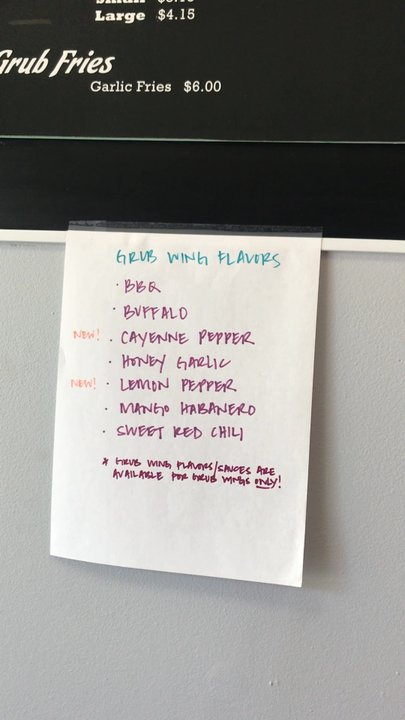 Large $4.15
Grub Fries
Garlic Fries $6.00
GRUB WING FLAVORS
· BBQ
· BUFFALO
NEW! · CAYENNE PEPPER
· HONEY GARLIC
NEW! · LEMON PEPPER
· MANGO HABANERO
· SWEET RED CHILI
* GRUB WING FLAVORS/SAUCES ARE
AVAILABLE FOR GRUB WINGS ONLY!